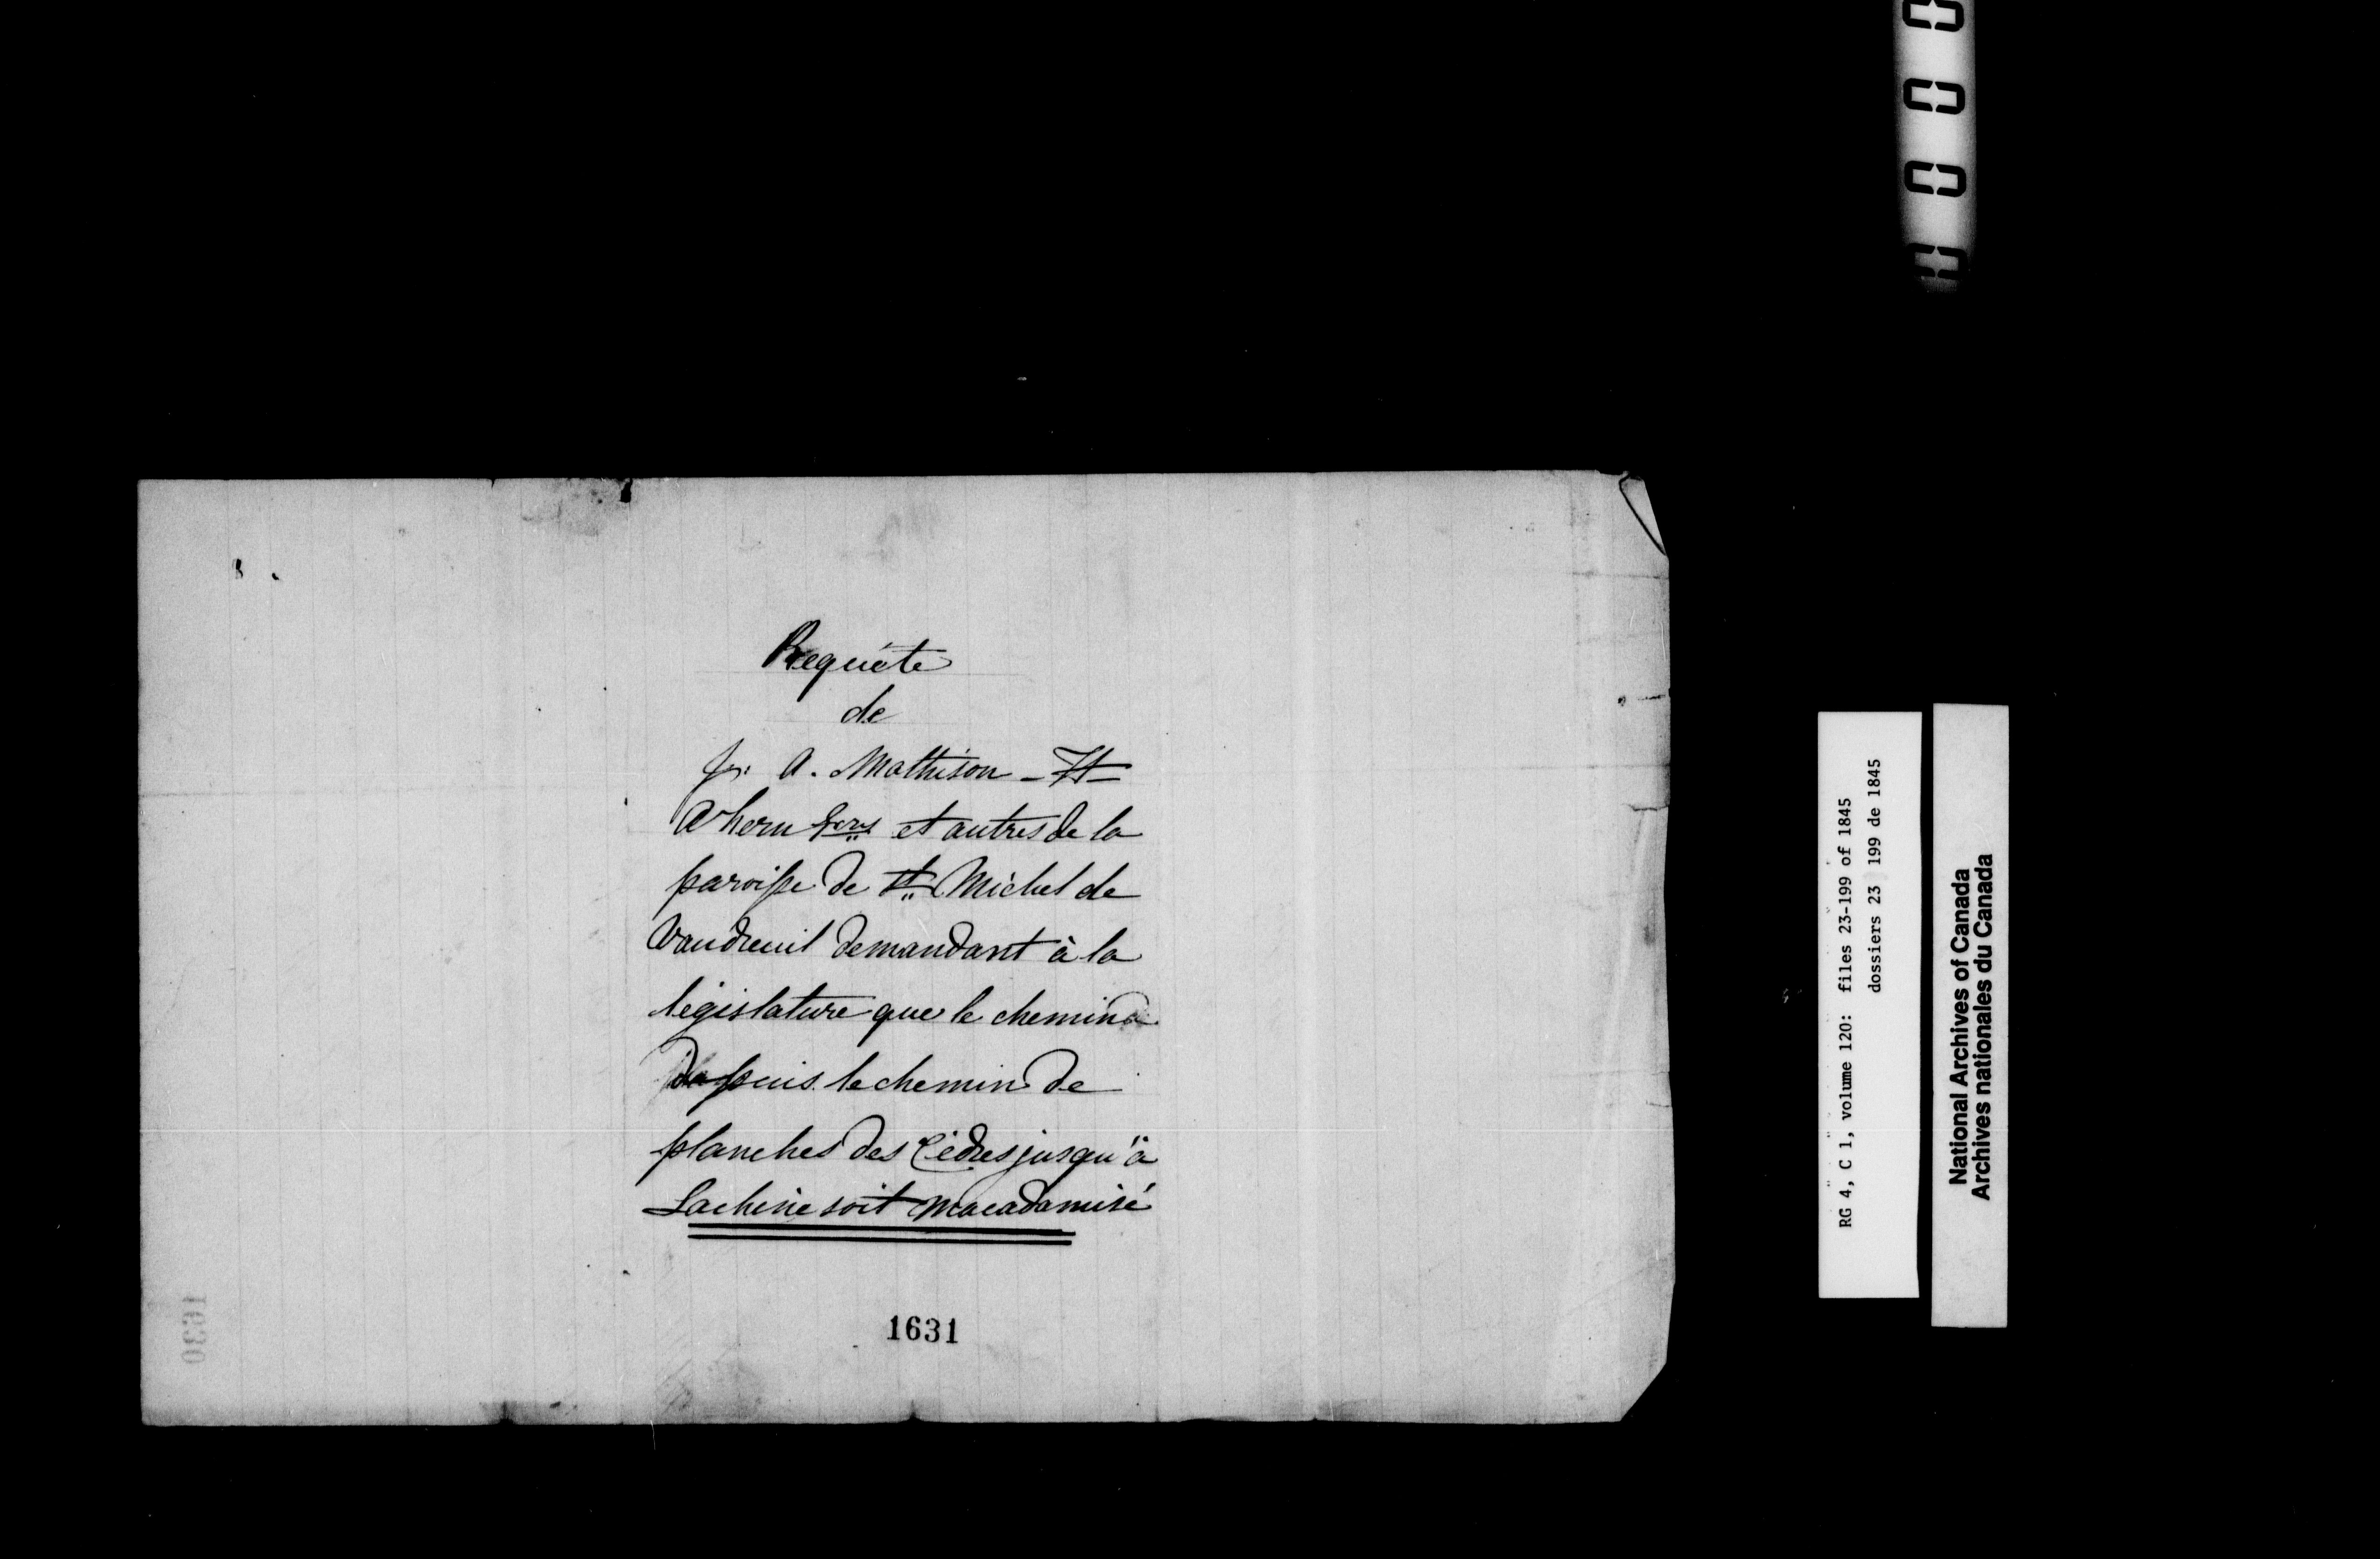 Requête
de
A. Mathison
Ahern Ecrs et autres de la
paroisse de St. Michel de
Vaudreuil demandant à la
législature que le chemin
depuis le chemin de
planches des Cèdres jusqu'à
Lachine soit Macadamisé
1631
1630
RG 4, C 1, volume 120: files 23-199 of 1845
dossiers 23 199 de 1845
National Archives of Canada
Archives nationales du Canada
0 0 0 0